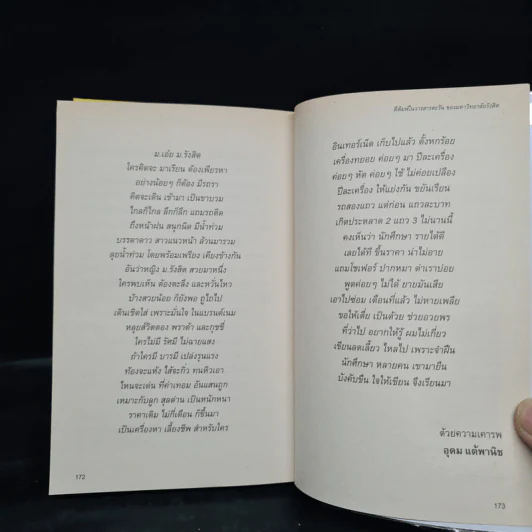 ม.เอ๋ย ม.รังสิต
ใครคิดจะ มาเรียน ต้องเพียรหา
อย่างน้อยๆ ก็ต้อง มีรถรา
คิดจะเดิน เข้ามา เป็นขาบวม
ไกลก็ไกล ลึกก็ลึก แถมรถติด
ถึงหน้าฝน สนุกนิด มีน้ำท่วม
บรรดาดาว สาวแนวหน้า ล้วนมารวม
ลุยน้ำท่วม โดยพร้อมเพรียง เคียงข้างกัน
อันว่าหญิง ม.รังสิต สวยมาหนึ่ง
ใครพบเห็น ต้องตะลึง และหวั่นไหว
บ้างสวยน้อย ก็ยังพอ ถูไถไป
เดินเชิดใส่ เพราะมั่นใจ ในแบรนด์เนม
หลุยส์วิตตอง พราด้า และกุชชี่
ใครไม่มี รัศมี ไม่ฉายแสง
ถ้าใครมี บารมี เปล่งรุนแรง
ท้องจะแห้ง ไส้จะกิ่ว ทนหิวเอา
ไหนจะเด่น ที่ค่าเทอม อันแสนถูก
เหมาะกับลูก สุลต่าน เป็นหนักหนา
ราคาเดิม ไม่กี่เดือน ก็ขึ้นมา
เป็นเครื่องหา เลี้ยงชีพ สำหรับใคร
172
ตีพิมพ์ในวารสารตะวัน ของมหาวิทยาลัยรังสิต
อินเทอร์เน็ต เก็บไปแล้ว ตั้งหกร้อย
เครื่องทยอย ค่อยๆ มา ปีละเครื่อง
ค่อยๆ หัด ค่อยๆ ใช้ ไม่ค่อยเปลือง
ปีละเครื่อง ให้แย่งกัน ขยันเรียน
รถสองแถว แต่ก่อน แถวละบาท
เกิดประหลาด 2 แถว 3 ไม่นานนี้
คงเห็นว่า นักศึกษา รายได้ดี
เลยได้ที ขึ้นราคา น่าไม่อาย
แถมโชเฟอร์ ปากหมา ด่าเราบ่อย
พูดค่อยๆ ไม่ได้ ยายมันเสีย
เอาไปซ่อม เดือนที่แล้ว ไม่หายเพลีย
ขอให้เตี่ย เป็นด้วย ช่วยอวยพร
ที่ว่าไป อยากให้รู้ ผมไม่เกี่ยว
เขียนฉดเลี้ยว ใหลไป เพราะจำฝืน
นักศึกษา หลายคน เขามายืน
บังคับขืน ใจให้เขียน จึงเรียนมา
ด้วยความเคารพ
อุดม แต้พานิช
173